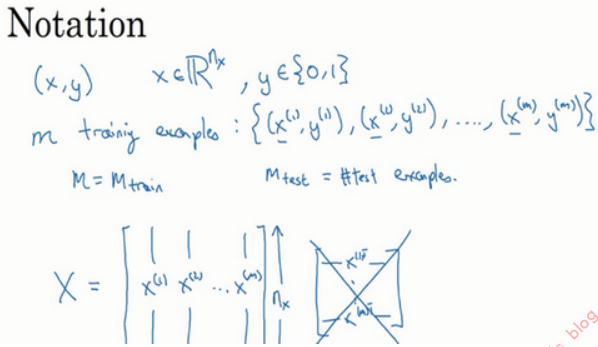 Notation
(x,y) x∈ℝ^{n_x}, y∈{0,1}
m trainig examples : {(x^{(1)}, y^{(1)}), (x^{(2)}, y^{(2)}), ...., (x^{(m)}, y^{(m)})}
M = M_{train} M_{test} = #test examples.
X = [ x^{(1)} x^{(2)} ... x^{(m)} ] n_x
x^{(1)T}
x^{(m)T}
blog